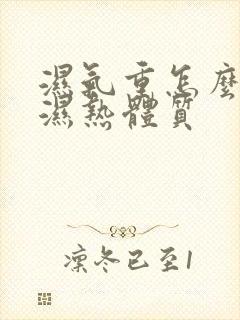 濕氣重怎麼
濕熱體質
凜冬已至1